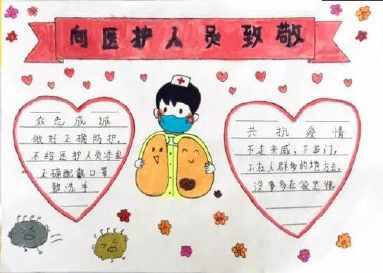 向医护人员致敬
众志成城
做好正确防护,
不给医护人员添乱
正确配戴口罩
勤洗手
共抗疫情
不走亲戚,不串门,
不在人群多的地方去,
没事多在家思情